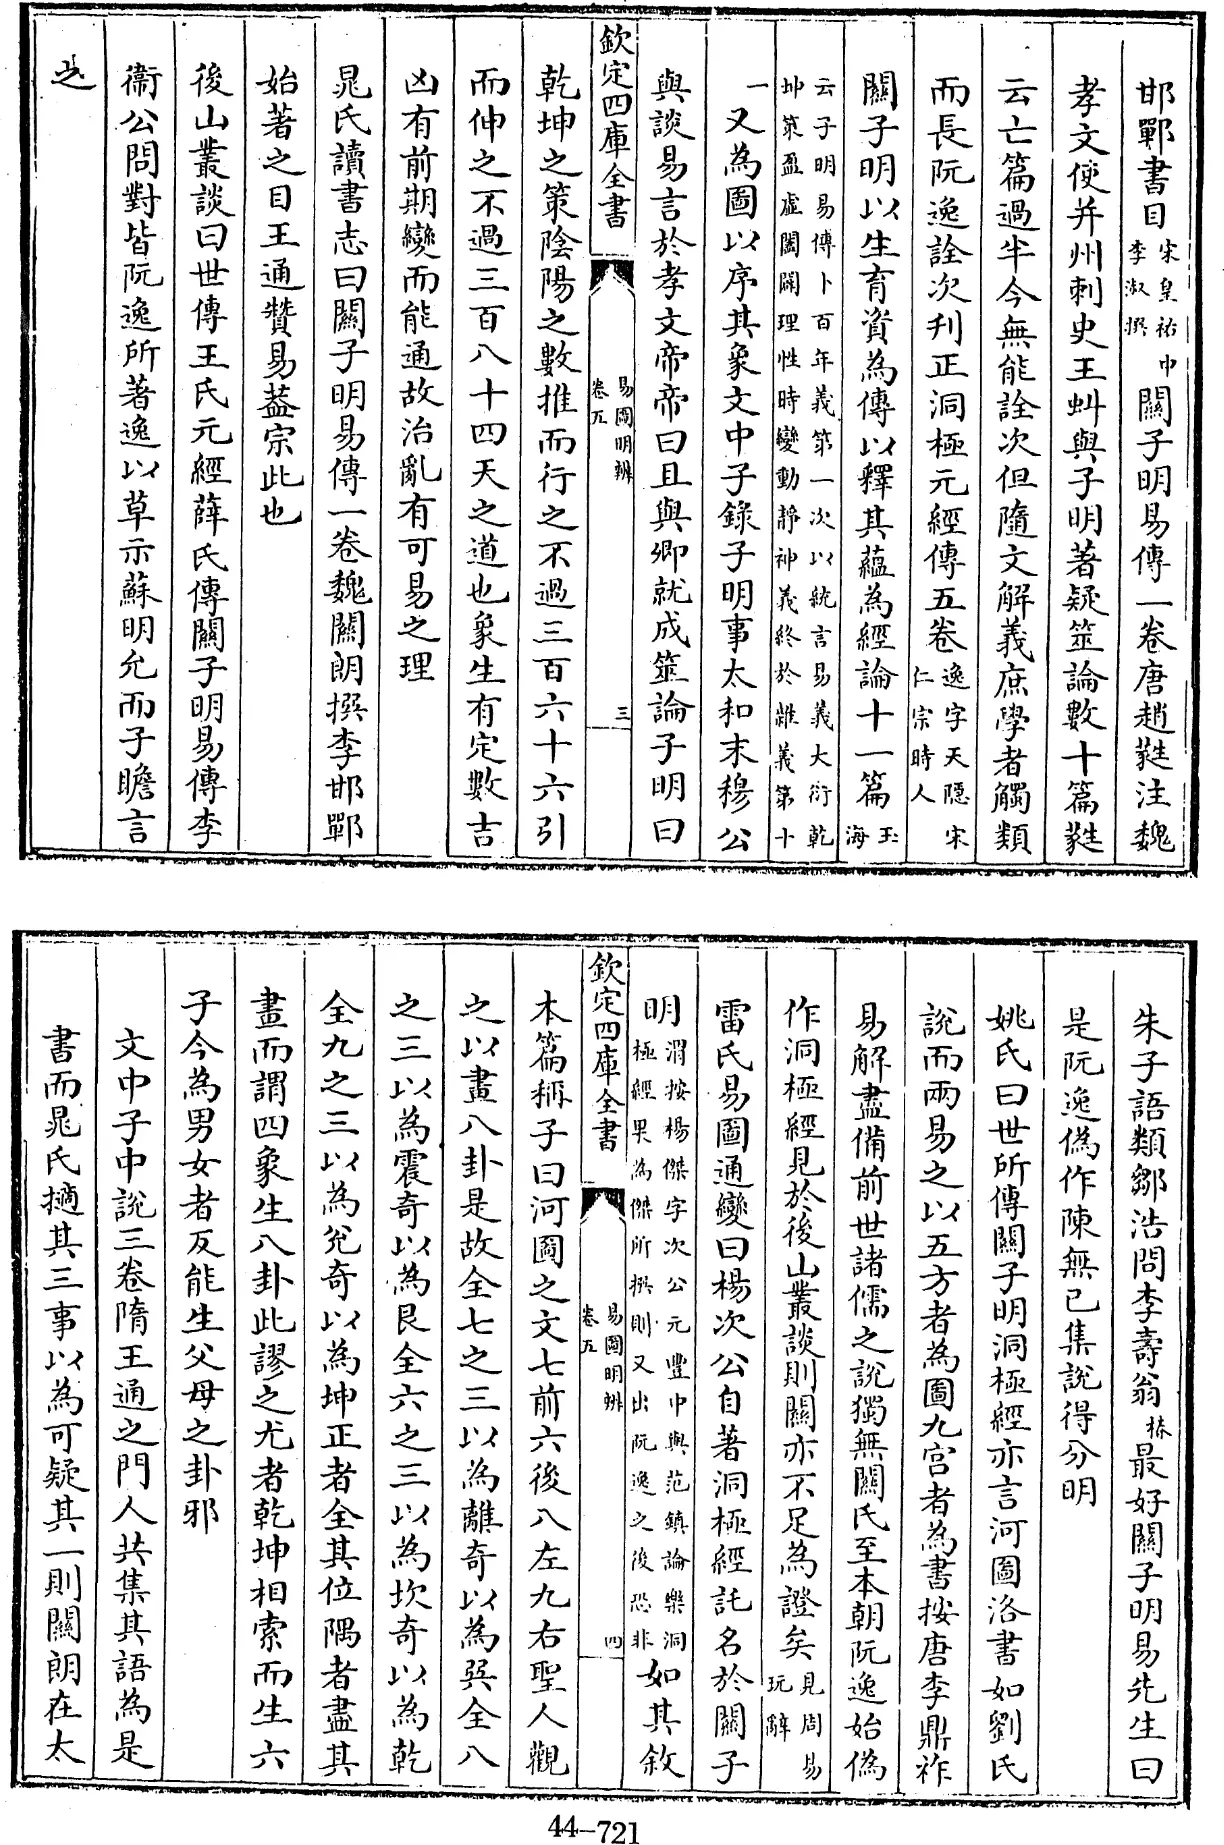 邯鄲書目宋皇祐中李淑撰關子明易傳一卷唐趙蕤注魏
孝文使并州刺史王虬與子明著疑筮論數十篇蕤
云亡篇過半今無能詮次但隨文解義庶學者觸類
而長阮逸詮次刋正洞極元經傳五卷逸字天隱宋仁宗時人
關子明以生育資為傳以釋其蘊為經論十一篇玉海
云子明易傳卜百年義第一次以統言易義大衍乾坤策盈虛闔闢理性時變動靜神義終於雜義第十
一又為圖以序其象文中子錄子明事太和末穆公
與談易言於孝文帝帝曰且與卿就成筮論子明曰
欽定四庫全書
易圖明辨
卷五
三
乾坤之策陰陽之數推而行之不過三百六十六引
而伸之不過三百八十四天之道也象生有定數吉
凶有前期變而能通故治亂有可易之理
晁氏讀書志曰關子明易傳一卷魏關朗撰李邯鄲
始著之目王通贊易葢宗此也
後山叢談曰世傳王氏元經薛氏傳關子明易傳李
衛公問對皆阮逸所著逸以草示蘇明允而子瞻言
之
朱子語類鄒浩問李壽翁椿最好關子明易先生曰
是阮逸偽作陳無已集說得分明
姚氏曰世所傳關子明洞極經亦言河圖洛書如劉氏
說而兩易之以五方者為圖九宮者為書按唐李鼎祚
易解盡備前世諸儒之說獨無關氏至本朝阮逸始偽
作洞極經見於後山叢談則關亦不足為證矣見周易玩辭
雷氏易圖通變曰楊次公自著洞極經託名於關子
明渭按楊傑字次公元豐中與范鎮論樂洞極經果為傑所撰則又出阮逸之後恐非如其敘
欽定四庫全書
易圖明辨
卷五
四
本篇稱子曰河圖之文七前六後八左九右聖人觀
之以畫八卦是故全七之三以為離奇以為巽全八
之三以為震奇以為艮全六之三以為坎奇以為乾
全九之三以為兌奇以為坤正者全其位隅者盡其
畫而謂四象生八卦此謬之尤者乾坤相索而生六
子今為男女者反能生父母之卦邪
文中子中說三卷隋王通之門人共集其語為是
書而晁氏擿其三事以為可疑其一則關朗在太
44-721